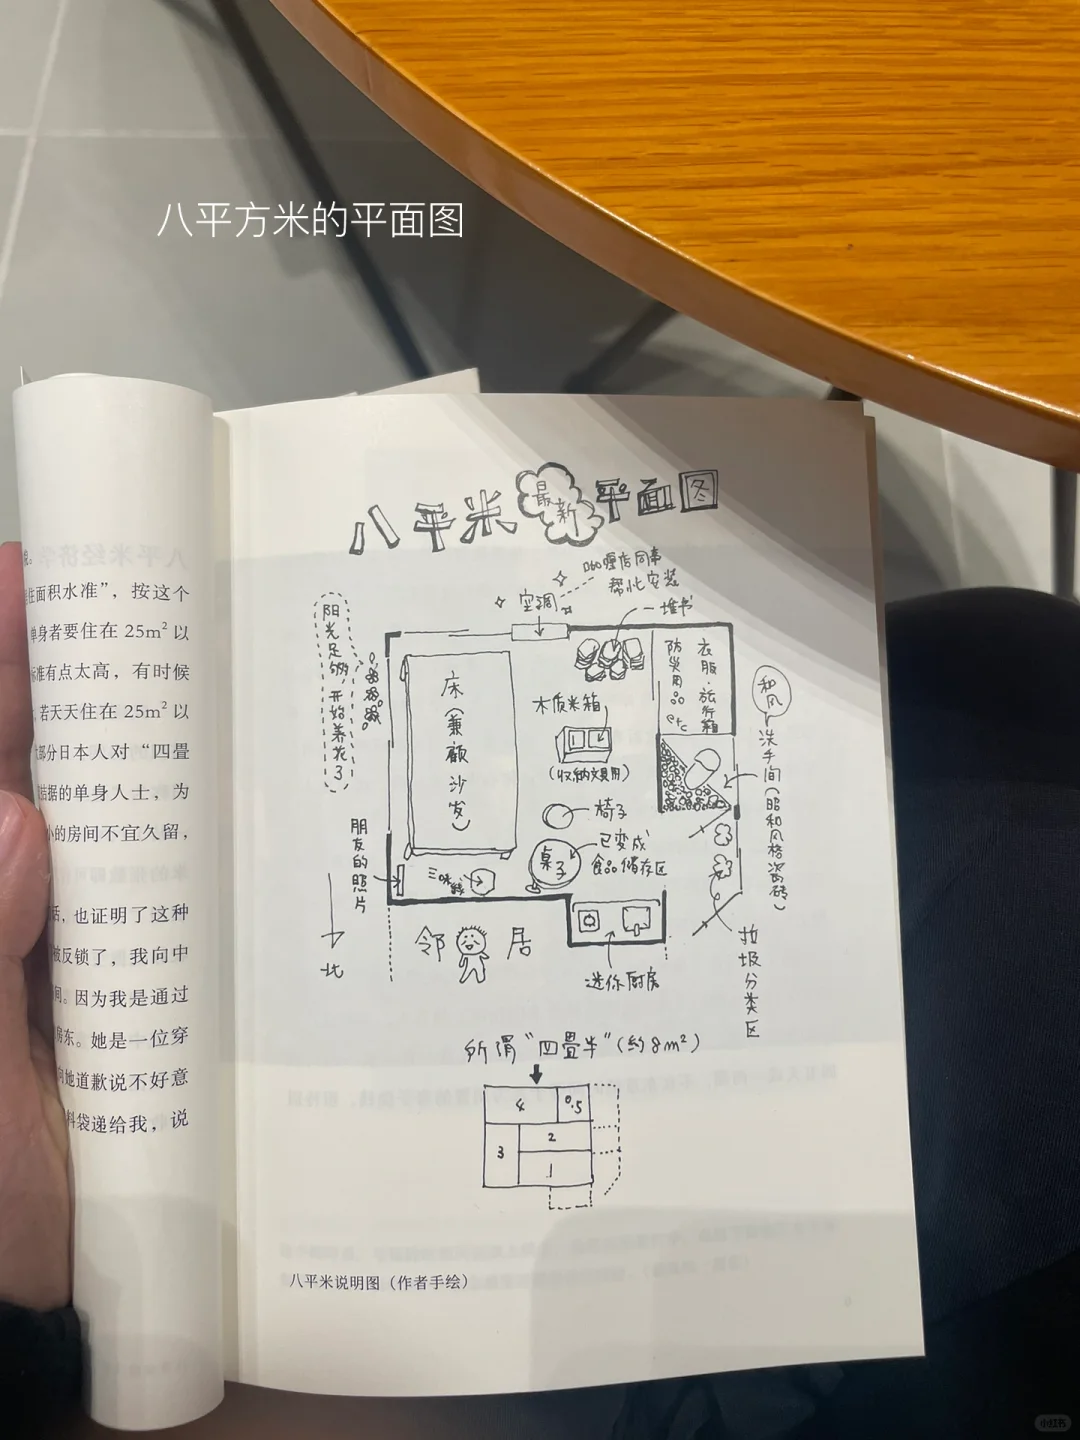 八平方米的平面图
住面积水准”，按这个
单身者要住在 25m² 以
标准有点太高，有时候
若天天住在 25m² 以
大部分日本人对“四畳
拮据的单身人士，为
小的房间不宜久留，
话，也证明了这种
被反锁了，我向中
间。因为我是通过
房东。她是一位穿
向她道歉说不好意
料袋递给我，说
八平米最新平面图
帮忙安装
空调
堆书
阳光足够，开始养花了
床（兼顾沙发）
木质米箱
（收纳文具用）
防灾用品 etc
衣服·旅行箱
和风
洗手间（昭和风格瓷砖）
椅子
桌子
已变成
食品储存区
朋友的照片
三味線
北
邻居
迷你厨房
垃圾分类区
所谓“四畳半”（約8m²）
4
0.5
3
2
1
八平米说明图（作者手绘）
小红书